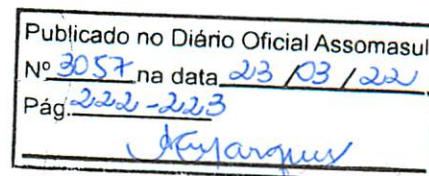 Publicado no Diário Oficial Assomasul
Nº 3057 na data 23 / 03 / 22
Pág. 222-223